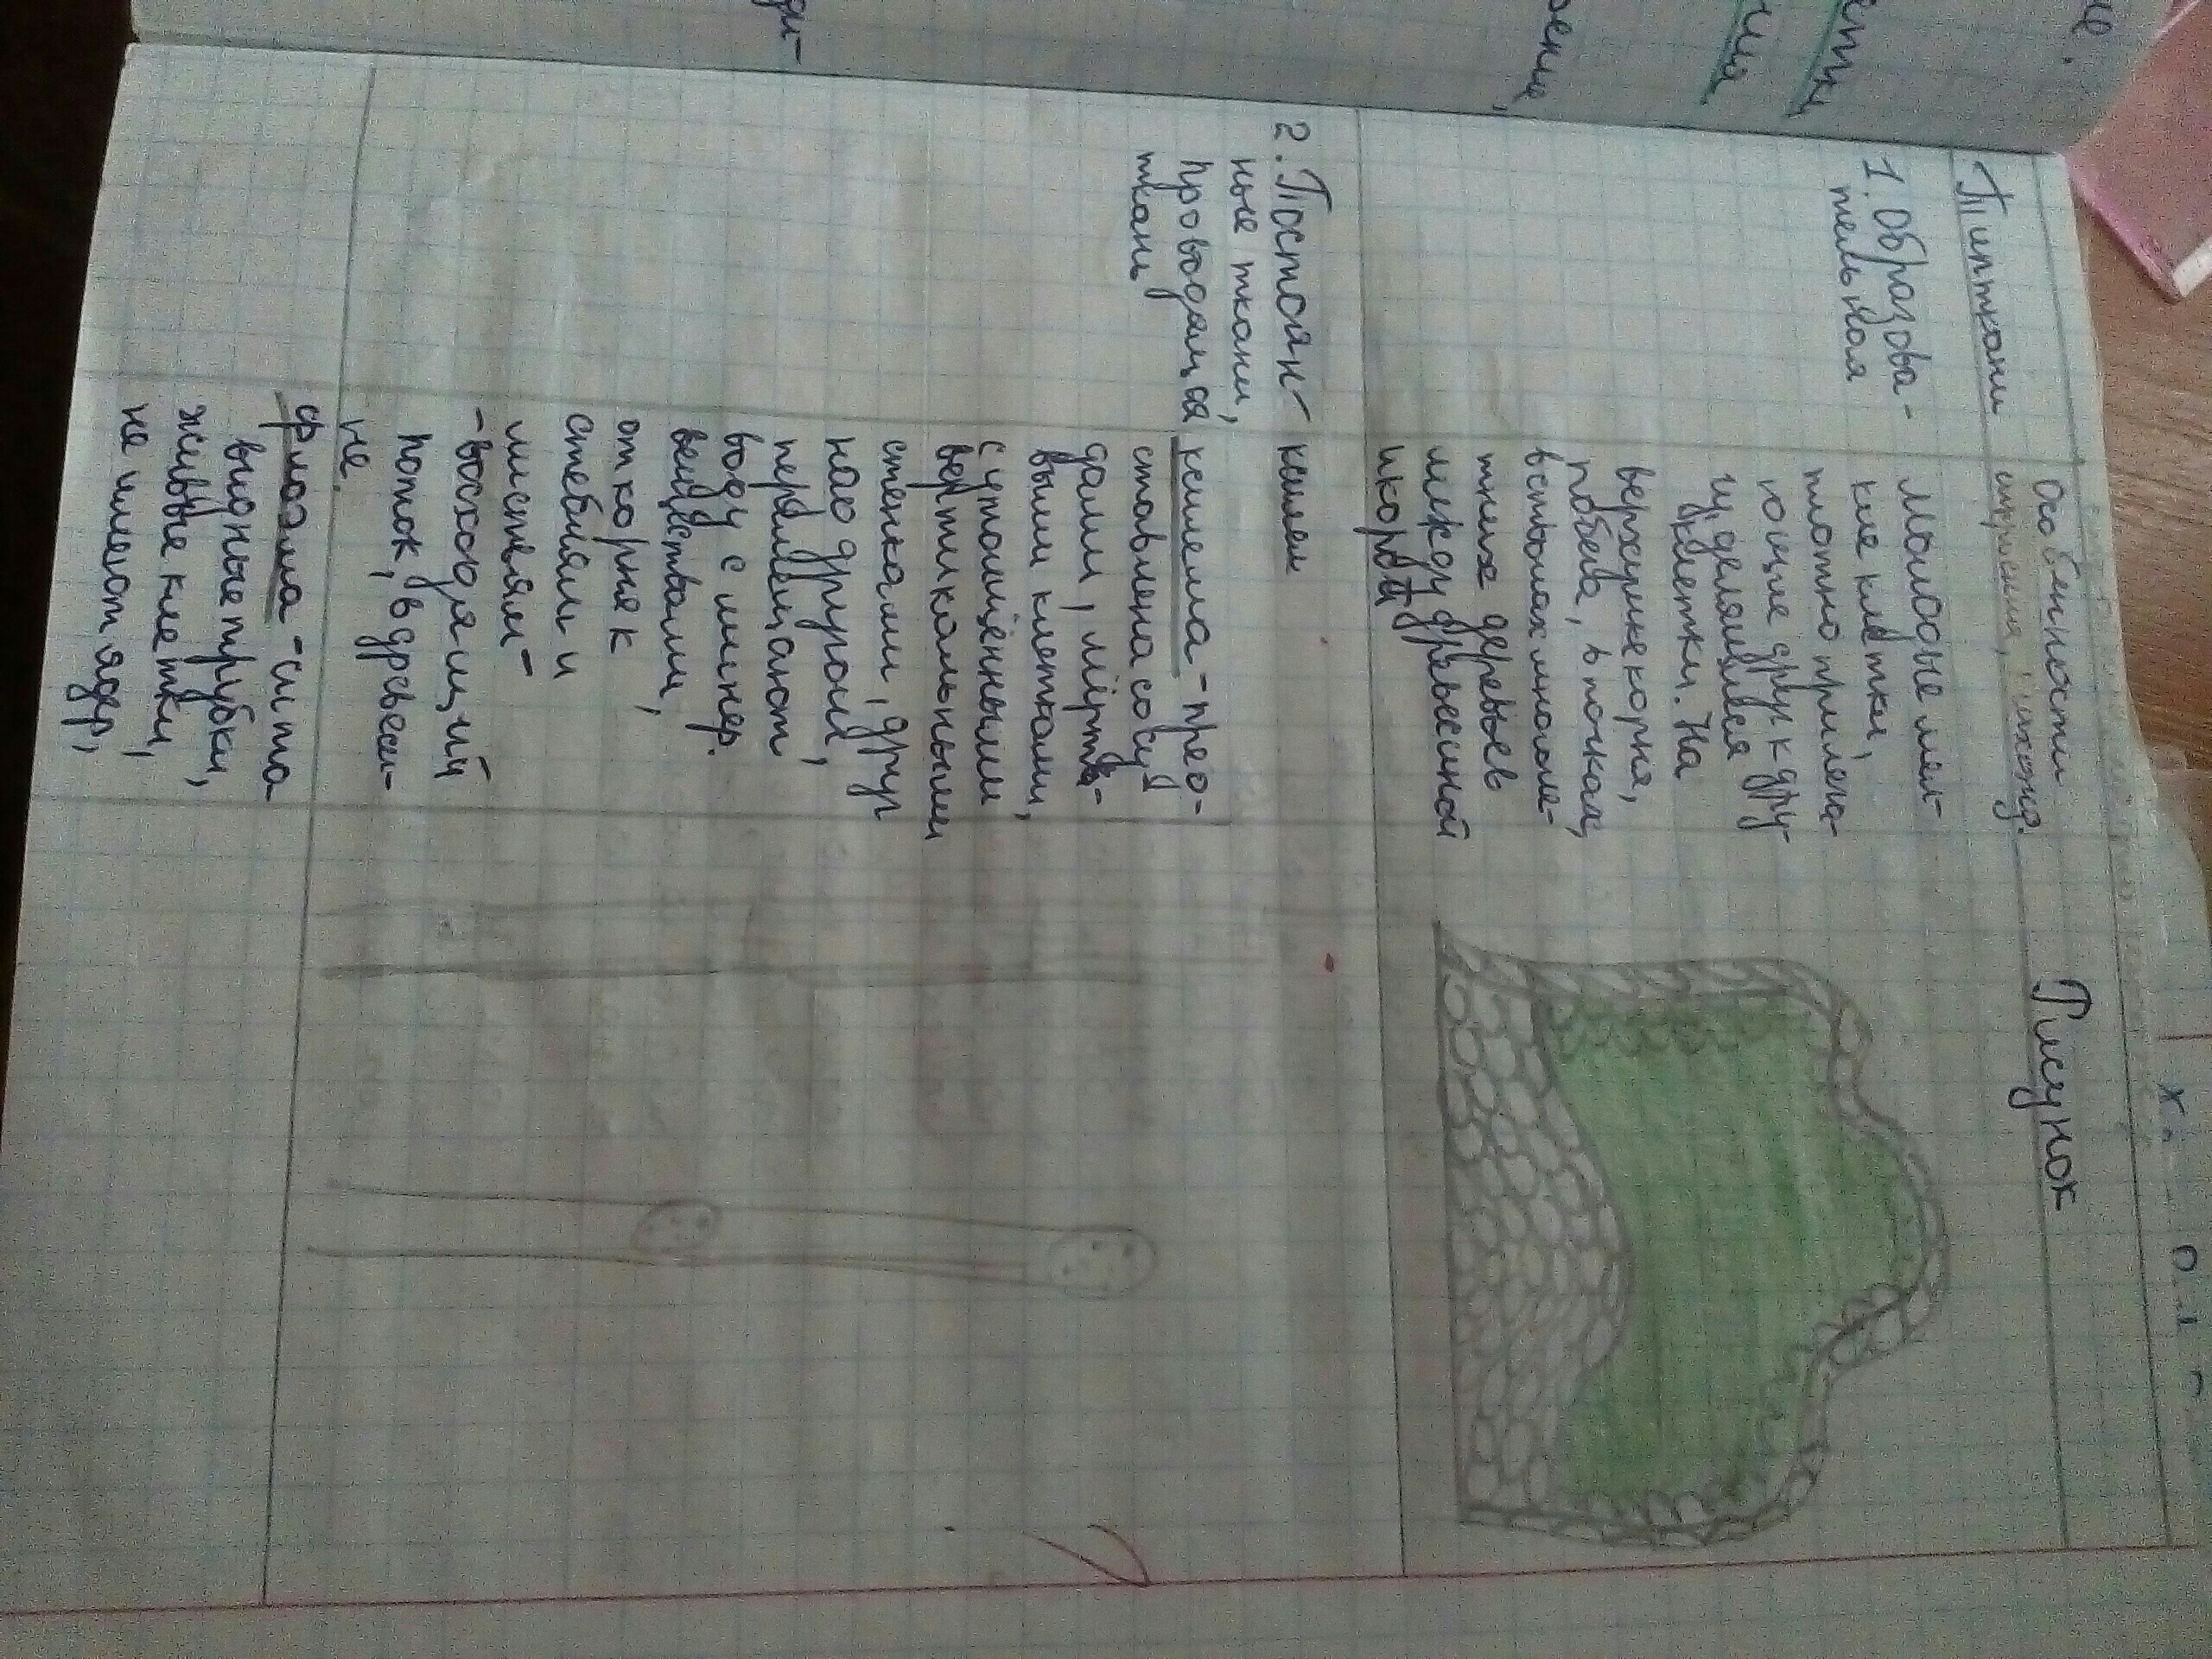 Тип ткани
Особенности
строения,
Рисунок
1. Образова-
тельная
Молодые мел-
кие клетки,
плотно прилега-
ющие друг к дру-
гу, делящиеся
клетки. На
верхушке корня,
побега, в почках,
в стволах многоле-
тних деревьев
между древесиной
и корой
2. Постоян-
ные ткани,
проводящая
ткань
ксилем
ксилема - пред-
ставлена сосу-
дами, мёртв-
выми клетками,
с утолщёнными
вертикальными
стенками, друг
над другом,
перемещают
воду с минер.
веществами,
от корня к
стеблям и
листьям -
- восходящий
поток, в древеси-
не.
флоэма - сито
видные трубки,
живые клетки,
не имеют ядер,